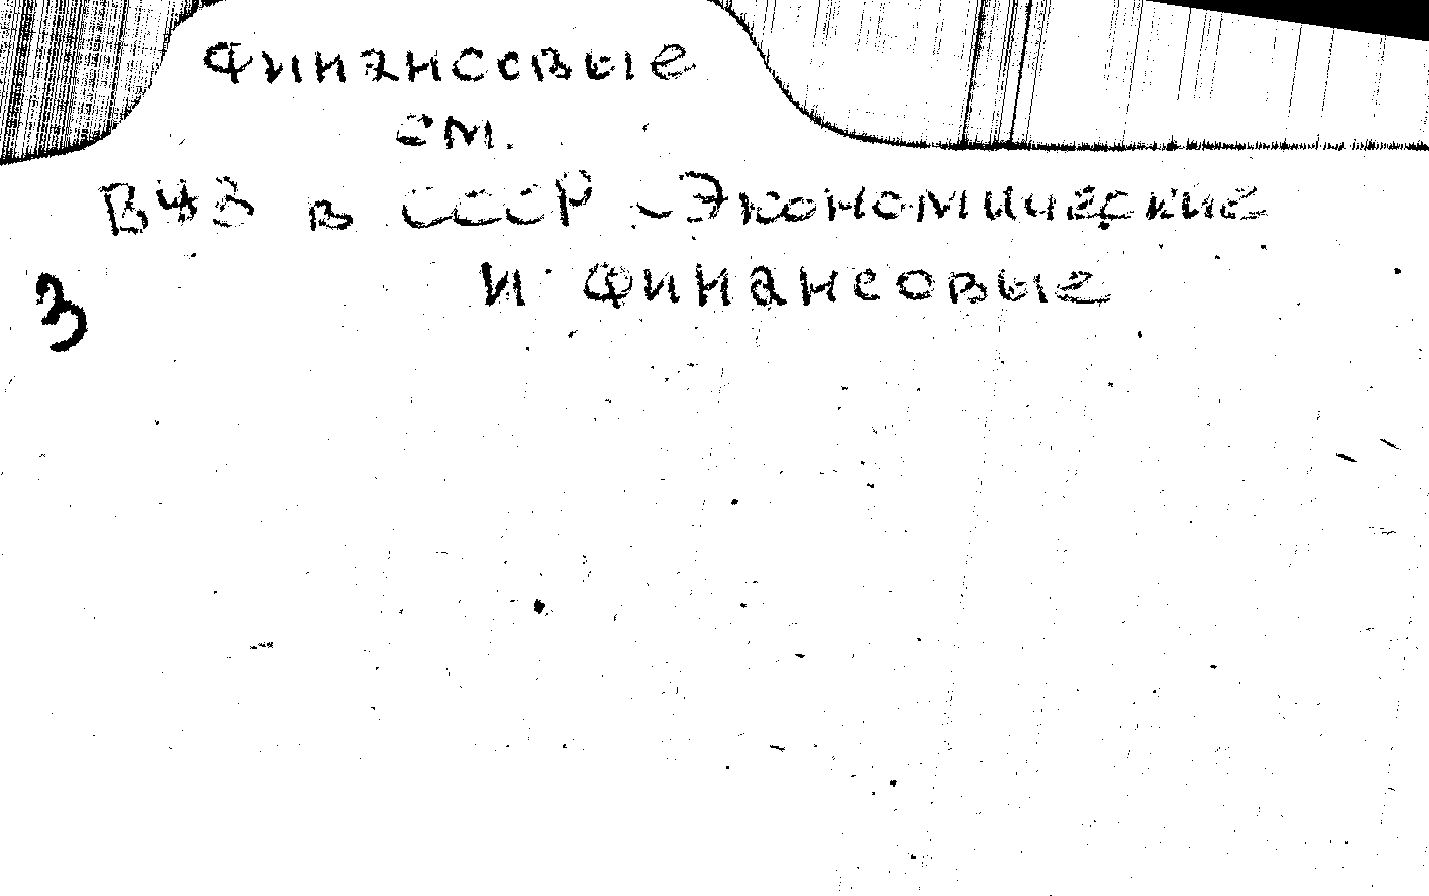 Финансовые
см.
ВУЗ в СССР - Экономические
и финансовые
3